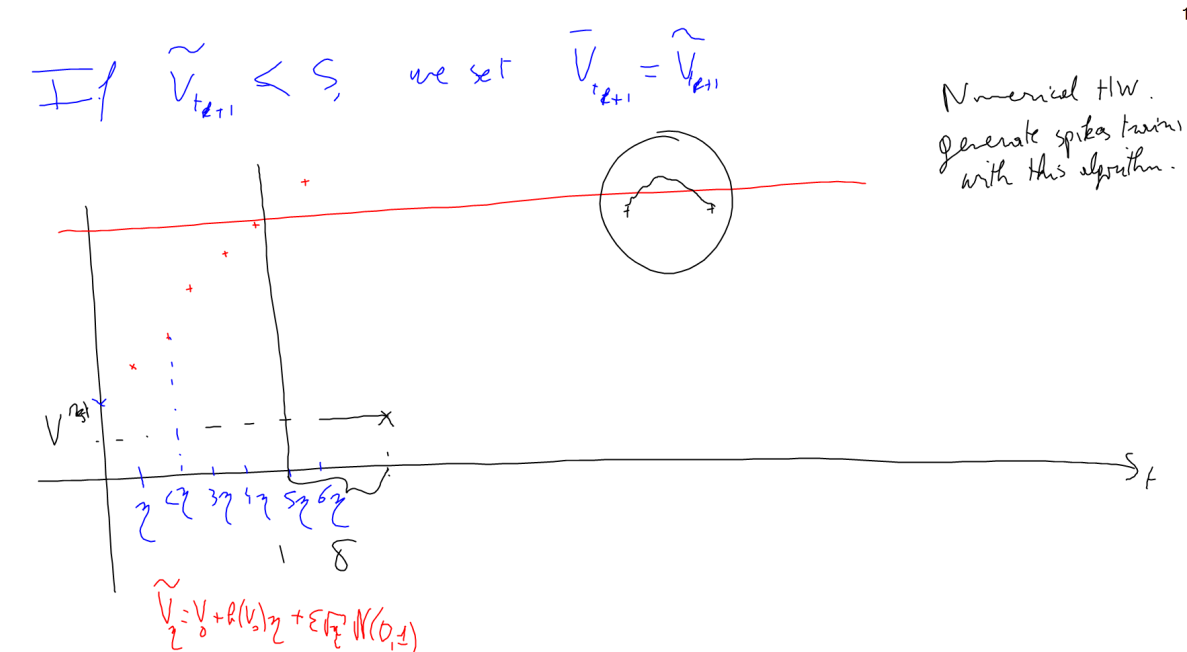 1
If Ṽ_{t_{k+1}} < S, we set V̄_{t_{k+1}} = Ṽ_{t_{k+1}}
Numerical HW.
generate spikes trains
with this algorithm.
V^{rest}
η 2η 3η 4η 5η 6η
t
1 δ
Ṽ_η = V_0 + h(V_0)η + ε√η N(0,1)